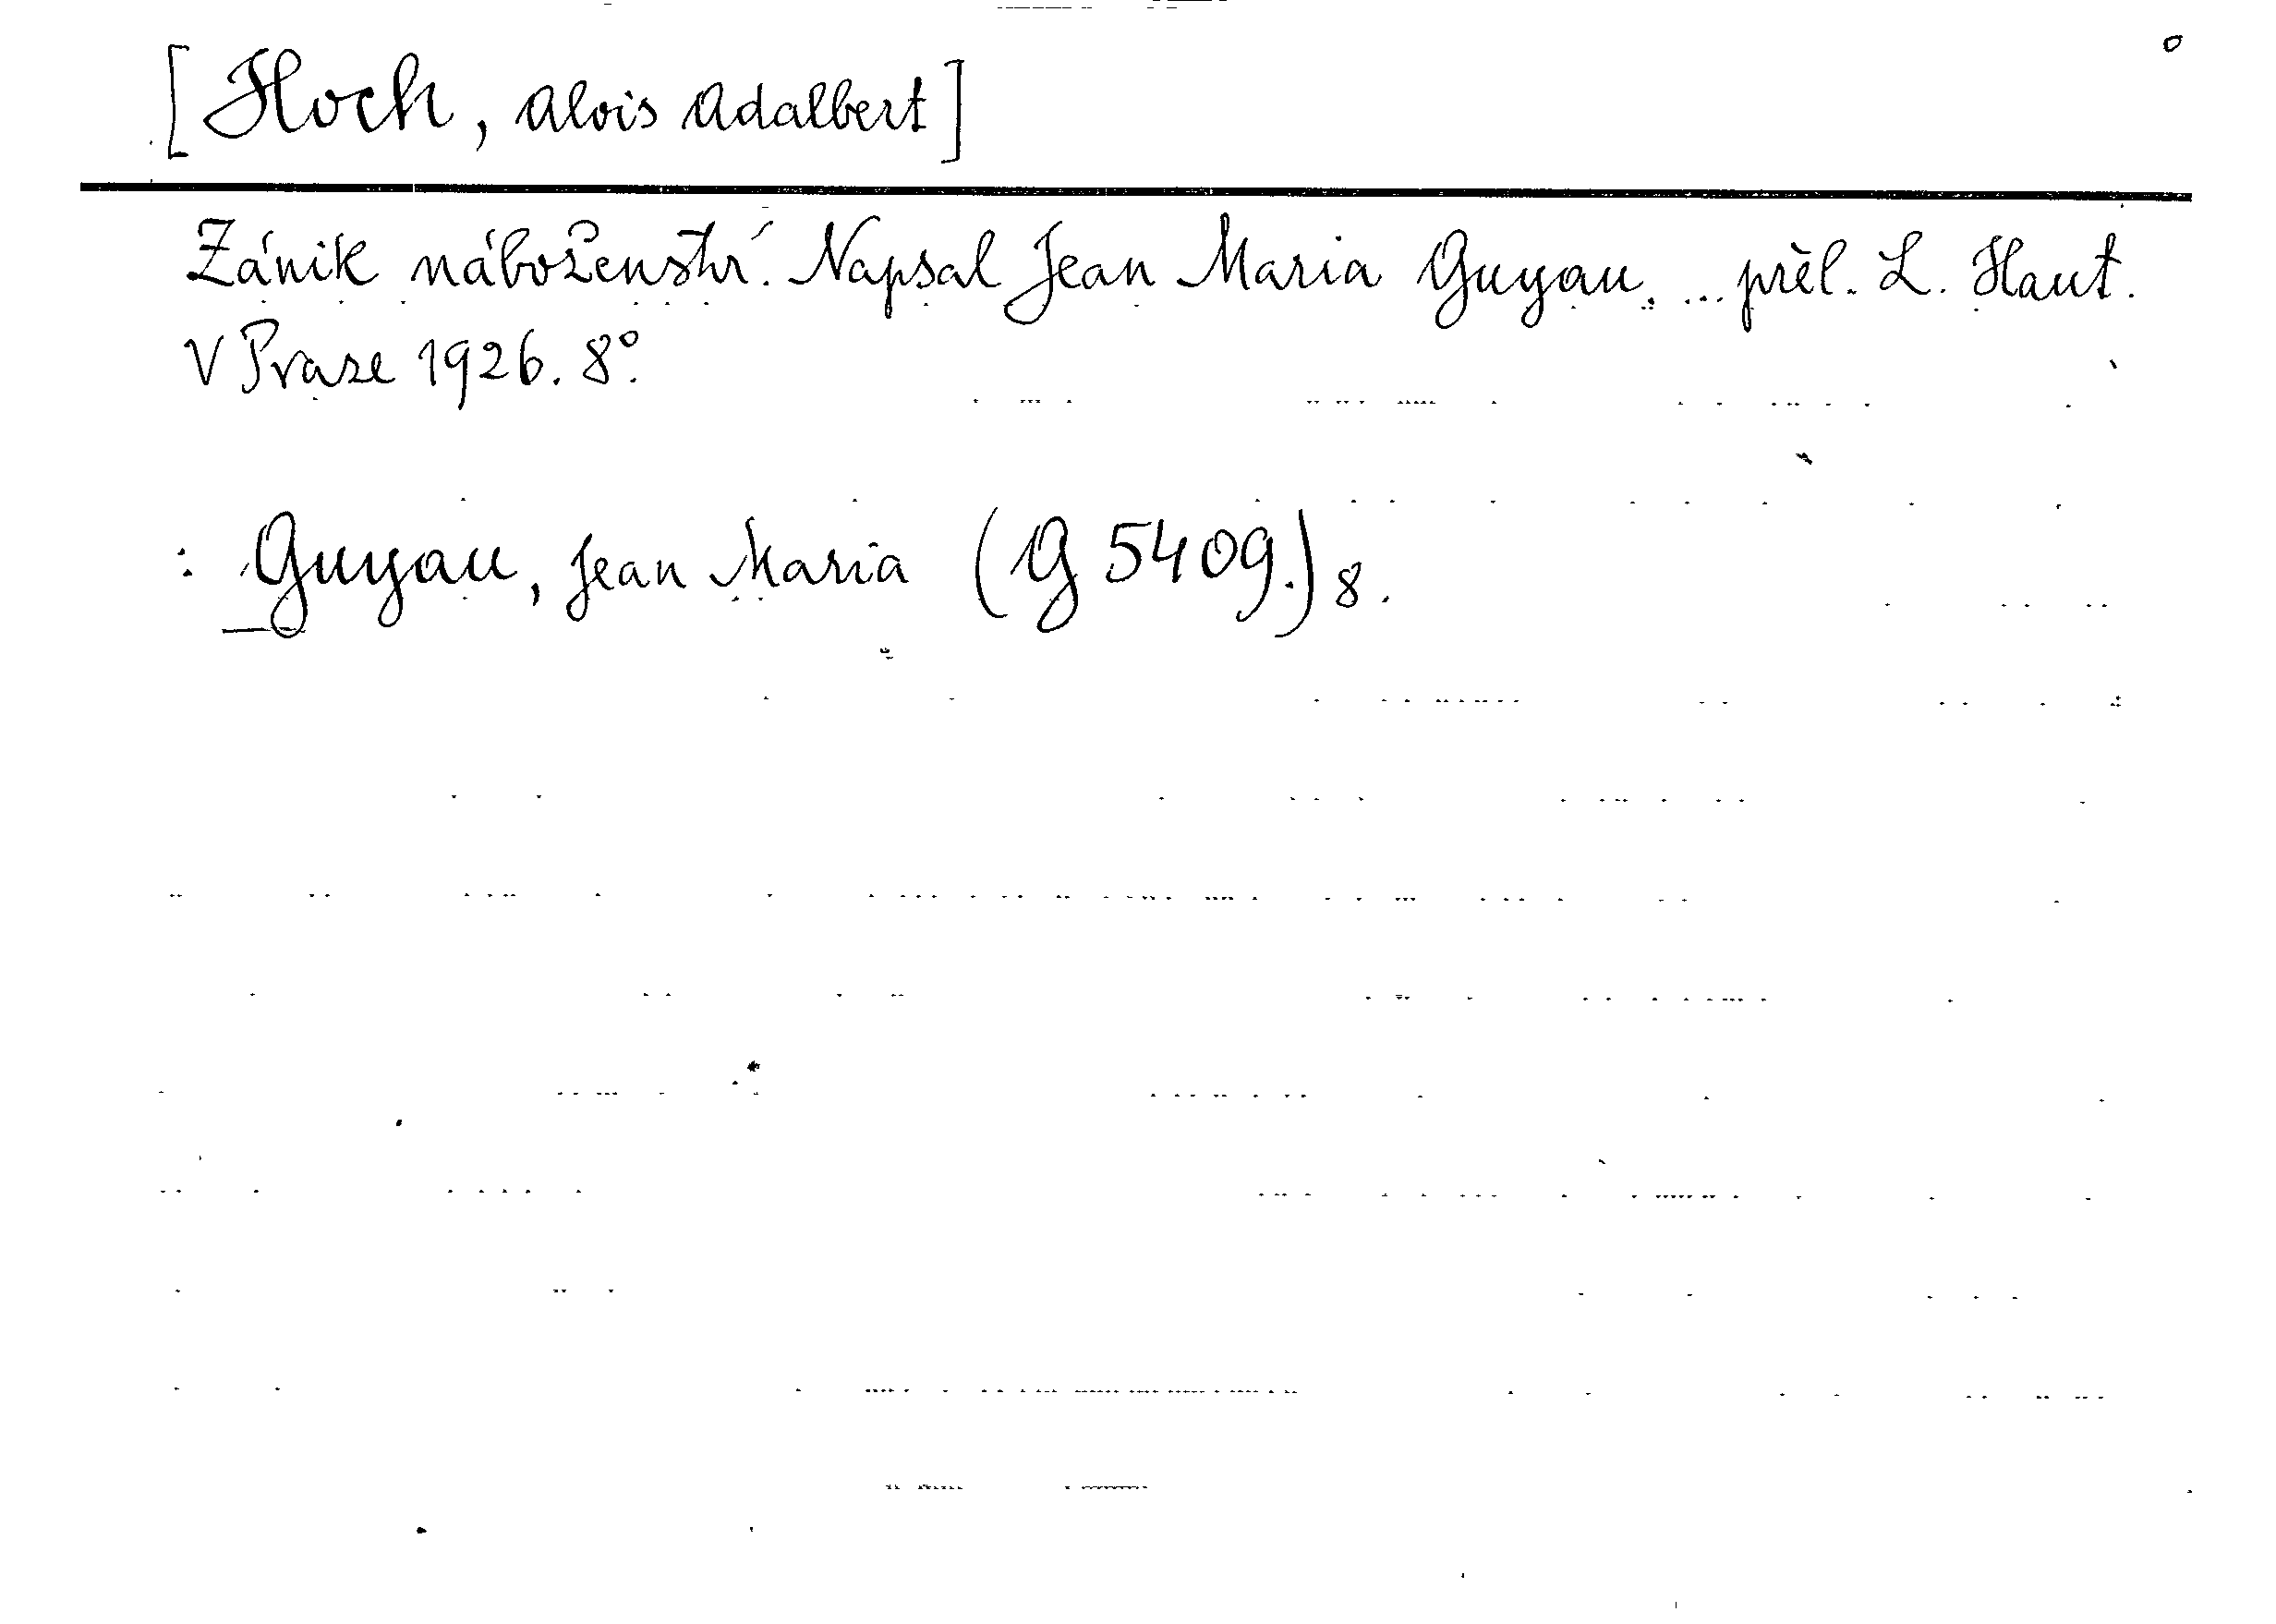 [Hoch, Alois Adalbert]
Zánik náboženství. Napsal Jean Maria Guyau. ... přel. L. Haut.
V Praze 1926. 8°.
: Guyau, Jean Maria (G 5409.) 8.